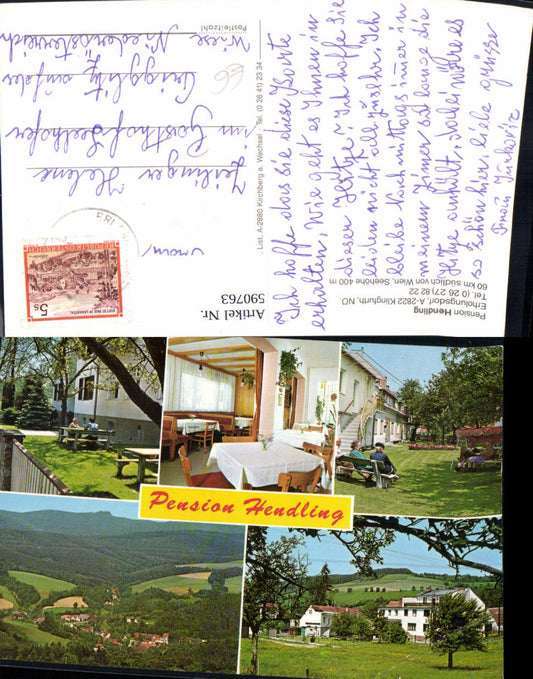 Pension Hendling
Erholungsdorf, A-2822 Klingfurth, NÖ.
Tel. (0 26 27) 82 22
60 km südlich von Wien, Seehöhe 400 m
Ich hoffe das Sie diese Karte
erhalten, wie geht es Ihnen in
dieser Hitze, Ich hoffe Sie
leiden nicht all zusehr. Ich
bleibe Nachmittags imer in
meinem Zimer solange die
Hitze anhält, dabei wäre es
so schön hier. liebe grüsse
List, A-2880 Kirchberg a. Wechsel · Tel. (0 26 41) 23 34
Artikel Nr.
590763
REPUBLIK ÖSTERREICH
5 S
Zeilinger Helene
im Gasthof Seelhofer
Prigglitz auf der
Wiese Niederösterreich
Postleitzahl
Pension Hendling